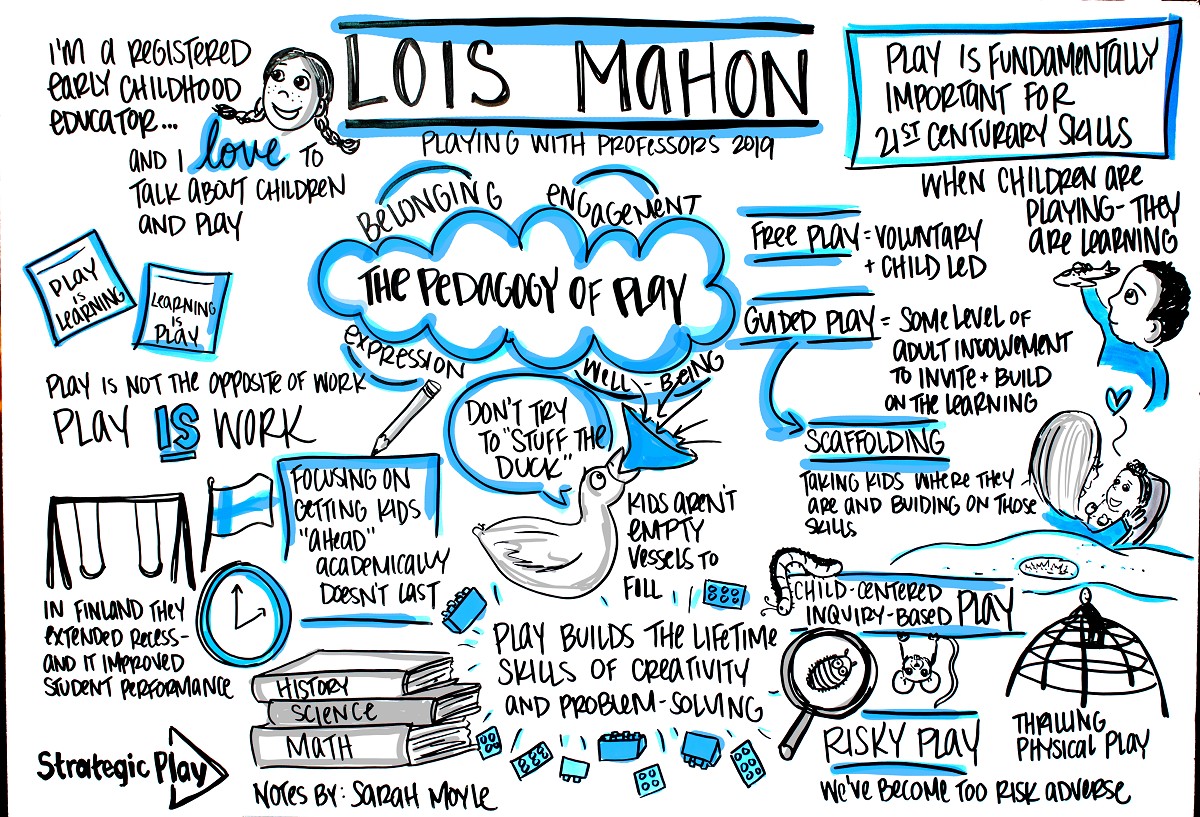 I'M A REGISTERED
EARLY CHILDHOOD
EDUCATOR...
AND I love TO
TALK ABOUT CHILDREN
AND PLAY
LOIS MAHON
PLAYING WITH PROFESSORS 2019
PLAY IS FUNDAMENTALLY
IMPORTANT FOR
21ST CENTURARY SKILLS
WHEN CHILDREN ARE
PLAYING - THEY
ARE LEARNING
BELONGING
ENGAGEMENT
THE PEDAGOGY OF PLAY
EXPRESSION
WELL-BEING
FREE PLAY = VOLUNTARY
+ CHILD LED
GUIDED PLAY = SOME LEVEL OF
ADULT INVOLVEMENT
TO INVITE + BUILD
ON THE LEARNING
SCAFFOLDING
TAKING KIDS WHERE THEY
ARE AND BUIDING ON THOSE
SKILLS
PLAY
IS
LEARNING
LEARNING
IS
PLAY
PLAY IS NOT THE OPPOSITE OF WORK
PLAY IS WORK
DON'T TRY
TO "STUFF THE
DUCK"
KIDS AREN'T
EMPTY
VESSELS TO
FILL
FOCUSING ON
GETTING KIDS
"AHEAD"
ACADEMICALLY
DOESN'T LAST
IN FINLAND THEY
EXTENDED RECESS-
AND IT IMPROVED
STUDENT PERFORMANCE
HISTORY
SCIENCE
MATH
PLAY BUILDS THE LIFETIME
SKILLS OF CREATIVITY
AND PROBLEM-SOLVING
CHILD-CENTERED
INQUIRY-BASED PLAY
RISKY PLAY
THRILLING
PHYSICAL PLAY
WE'VE BECOME TOO RISK ADVERSE
Strategic Play
NOTES BY: SARAH MOYLE